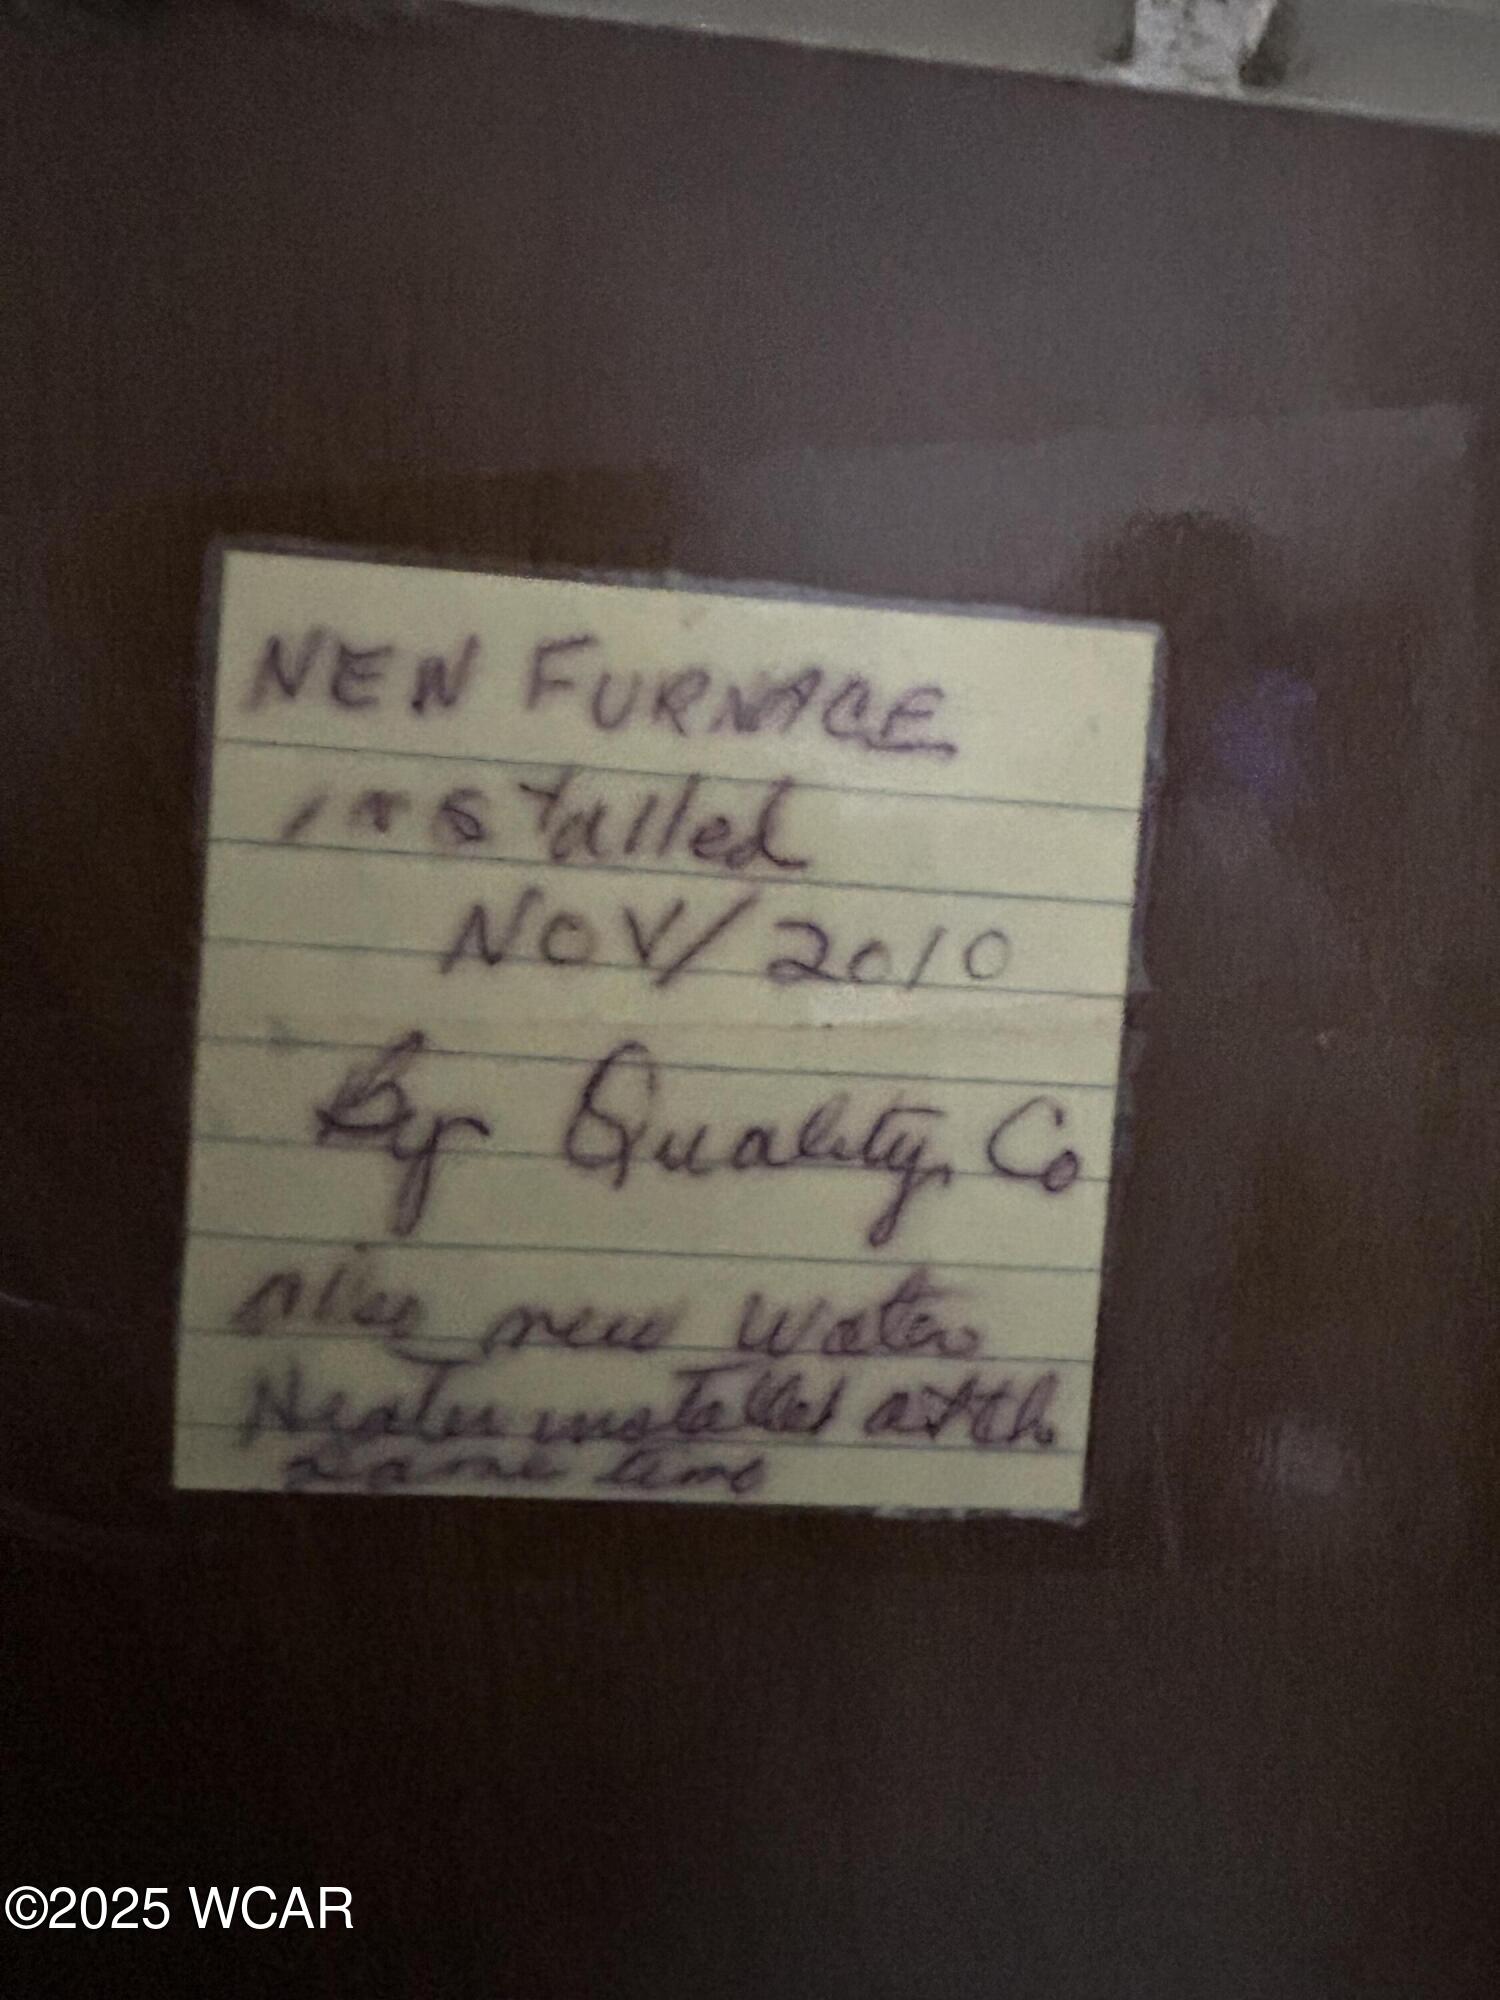 NEW FURNACE
installed
NOV/2010
By Quality Co
also new water
Heater installed at th
same time
©2025 WCAR